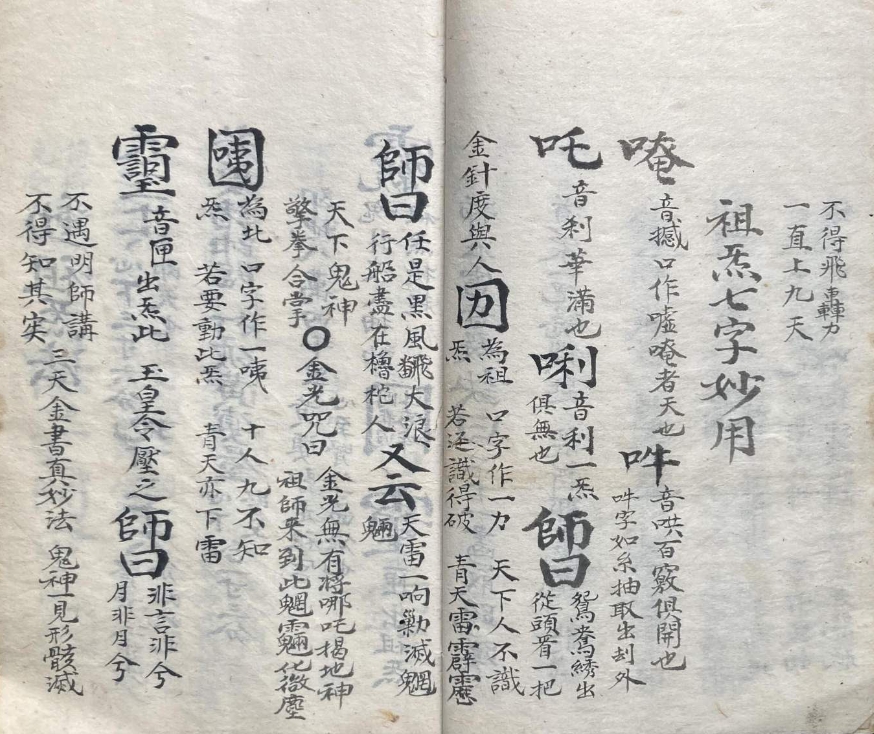 不得飛轟力
一直上九天
祖炁七字妙用
唵
音撼口作噓唵者天也
吽
音哄百竅俱開也
吽字如糸抽取出刦外
吒
音刹華滿也
唎
音利一炁
俱無也
師曰
鴛鴦綉出
從頭看一把
金針度與人
囡
為祖口字作一力天下人不識
炁若還識得破青天雷霹靂
師曰
任是黑風飜大浪
行船盡在櫓柁人
又云
天雷一响勦滅魍
魎
天下鬼神
擎拳合掌
○金光咒曰
金光無有將哪吒揭地神
祖師來到此魍魎化微塵
為此口字作一咦十人九不知
炁若要動此炁青天亦下雷
音匣出炁此玉皇令壓之
師曰
非言非兮
月非月兮
不遇明師講
不得知其实
三天金書真妙法鬼神一見形骸滅